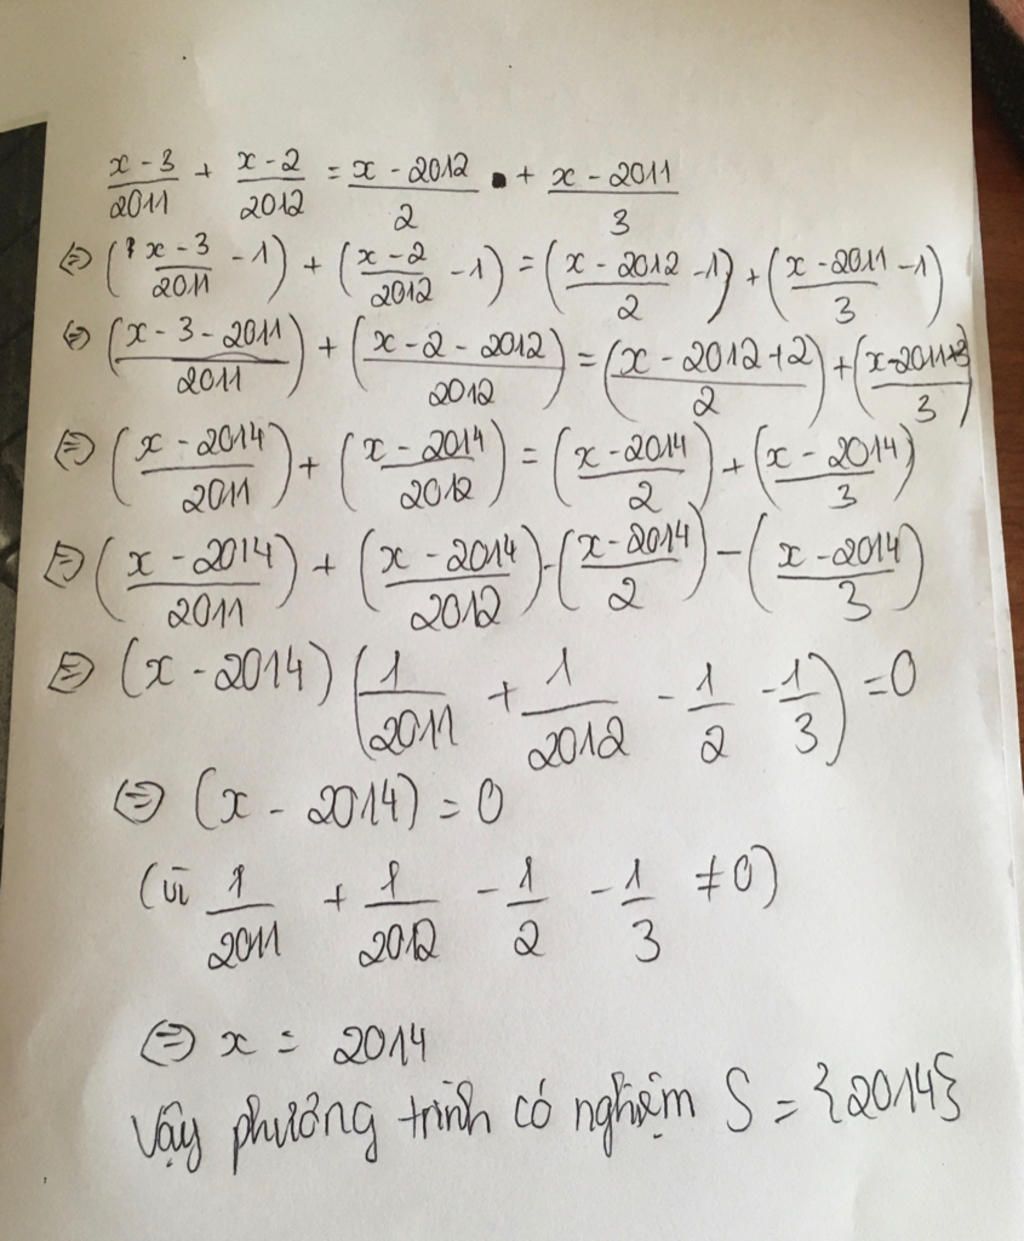 x - 3/2011 + x - 2/2012 = x - 2012/2 + x - 2011/3
⇔ (x - 3/2011 - 1) + (x - 2/2012 - 1) = (x - 2012/2 - 1) + (x - 2011/3 - 1)
⇔ (x - 3 - 2011/2011) + (x - 2 - 2012/2012) = (x - 2012 + 2/2) + (x - 2011 + 3/3)
⇔ (x - 2014/2011) + (x - 2014/2012) = (x - 2014/2) + (x - 2014/3)
⇔ (x - 2014/2011) + (x - 2014/2012) - (x - 2014/2) - (x - 2014/3)
⇔ (x - 2014) (1/2011 + 1/2012 - 1/2 - 1/3) = 0
⇔ (x - 2014) = 0
(vì 1/2011 + 1/2012 - 1/2 - 1/3 ≠ 0)
⇔ x = 2014
Vậy phương trình có nghiệm S = {2014}